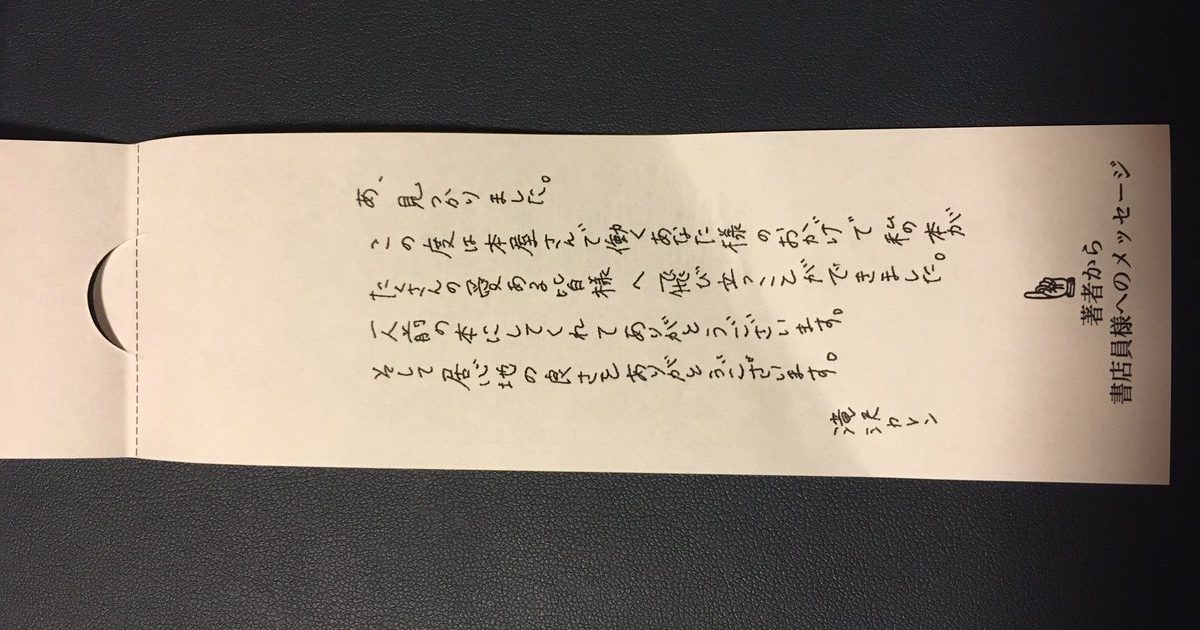 著者から
書店員様へのメッセージ
あ、見つかりました。
この度は本屋さんで働くあなた様のおかげで私の本が
たくさんの愛ある皆様へ飛び立つことができました。
一人前の本にしてくれてありがとうございます。
そして居心地の良さをありがとうございます。
滝沢カレン